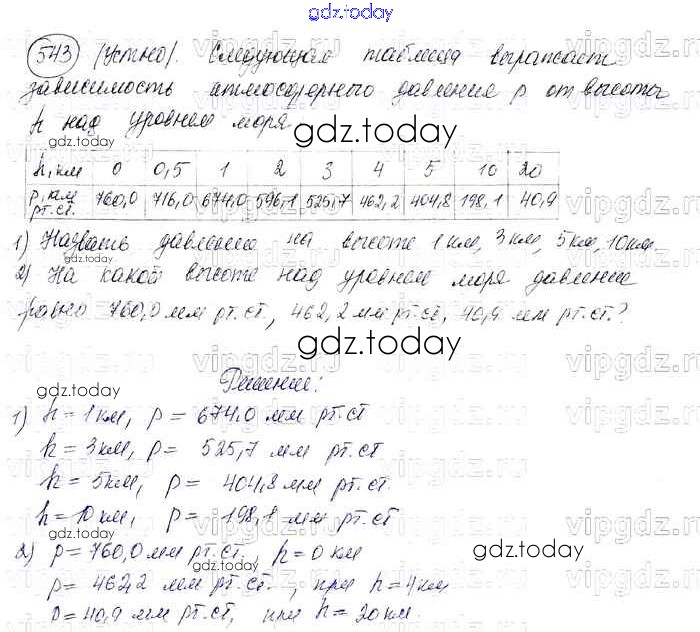 gdz.today
543 (Устно). Следующая таблица выражает
зависимость атмосферного давления p от высоты
h над уровнем моря
gdz.today
gdz.today
h, км 0 0,5 1 2 3 4 5 10 20
p, км рт.ст. 760,0 716,0 674,0 596,1 525,7 462,2 404,8 198,1 40,9
1) Назвать давление на высоте 1 км, 3 км, 5 км, 10 км.
gdz.today
2) На какой высоте над уровнем моря давление
равно 760,0 мм рт.ст., 462,2 мм рт.ст., 40,9 мм рт.ст.?
gdz.today
Решение:
gdz.today
1) h = 1 км, p = 674,0 мм рт.ст
h = 3 км, p = 525,7 мм рт.ст.
h = 5 км, p = 404,8 мм рт.ст.
h = 10 км, p = 198,1 мм рт.ст.
2) p = 760,0 мм рт.ст., h = 0 км
gdz.today
gdz.today
p = 462,2 мм рт.ст., при h = 4 км
p = 40,9 мм рт.ст, при h = 20 км.
vipgdz.ru